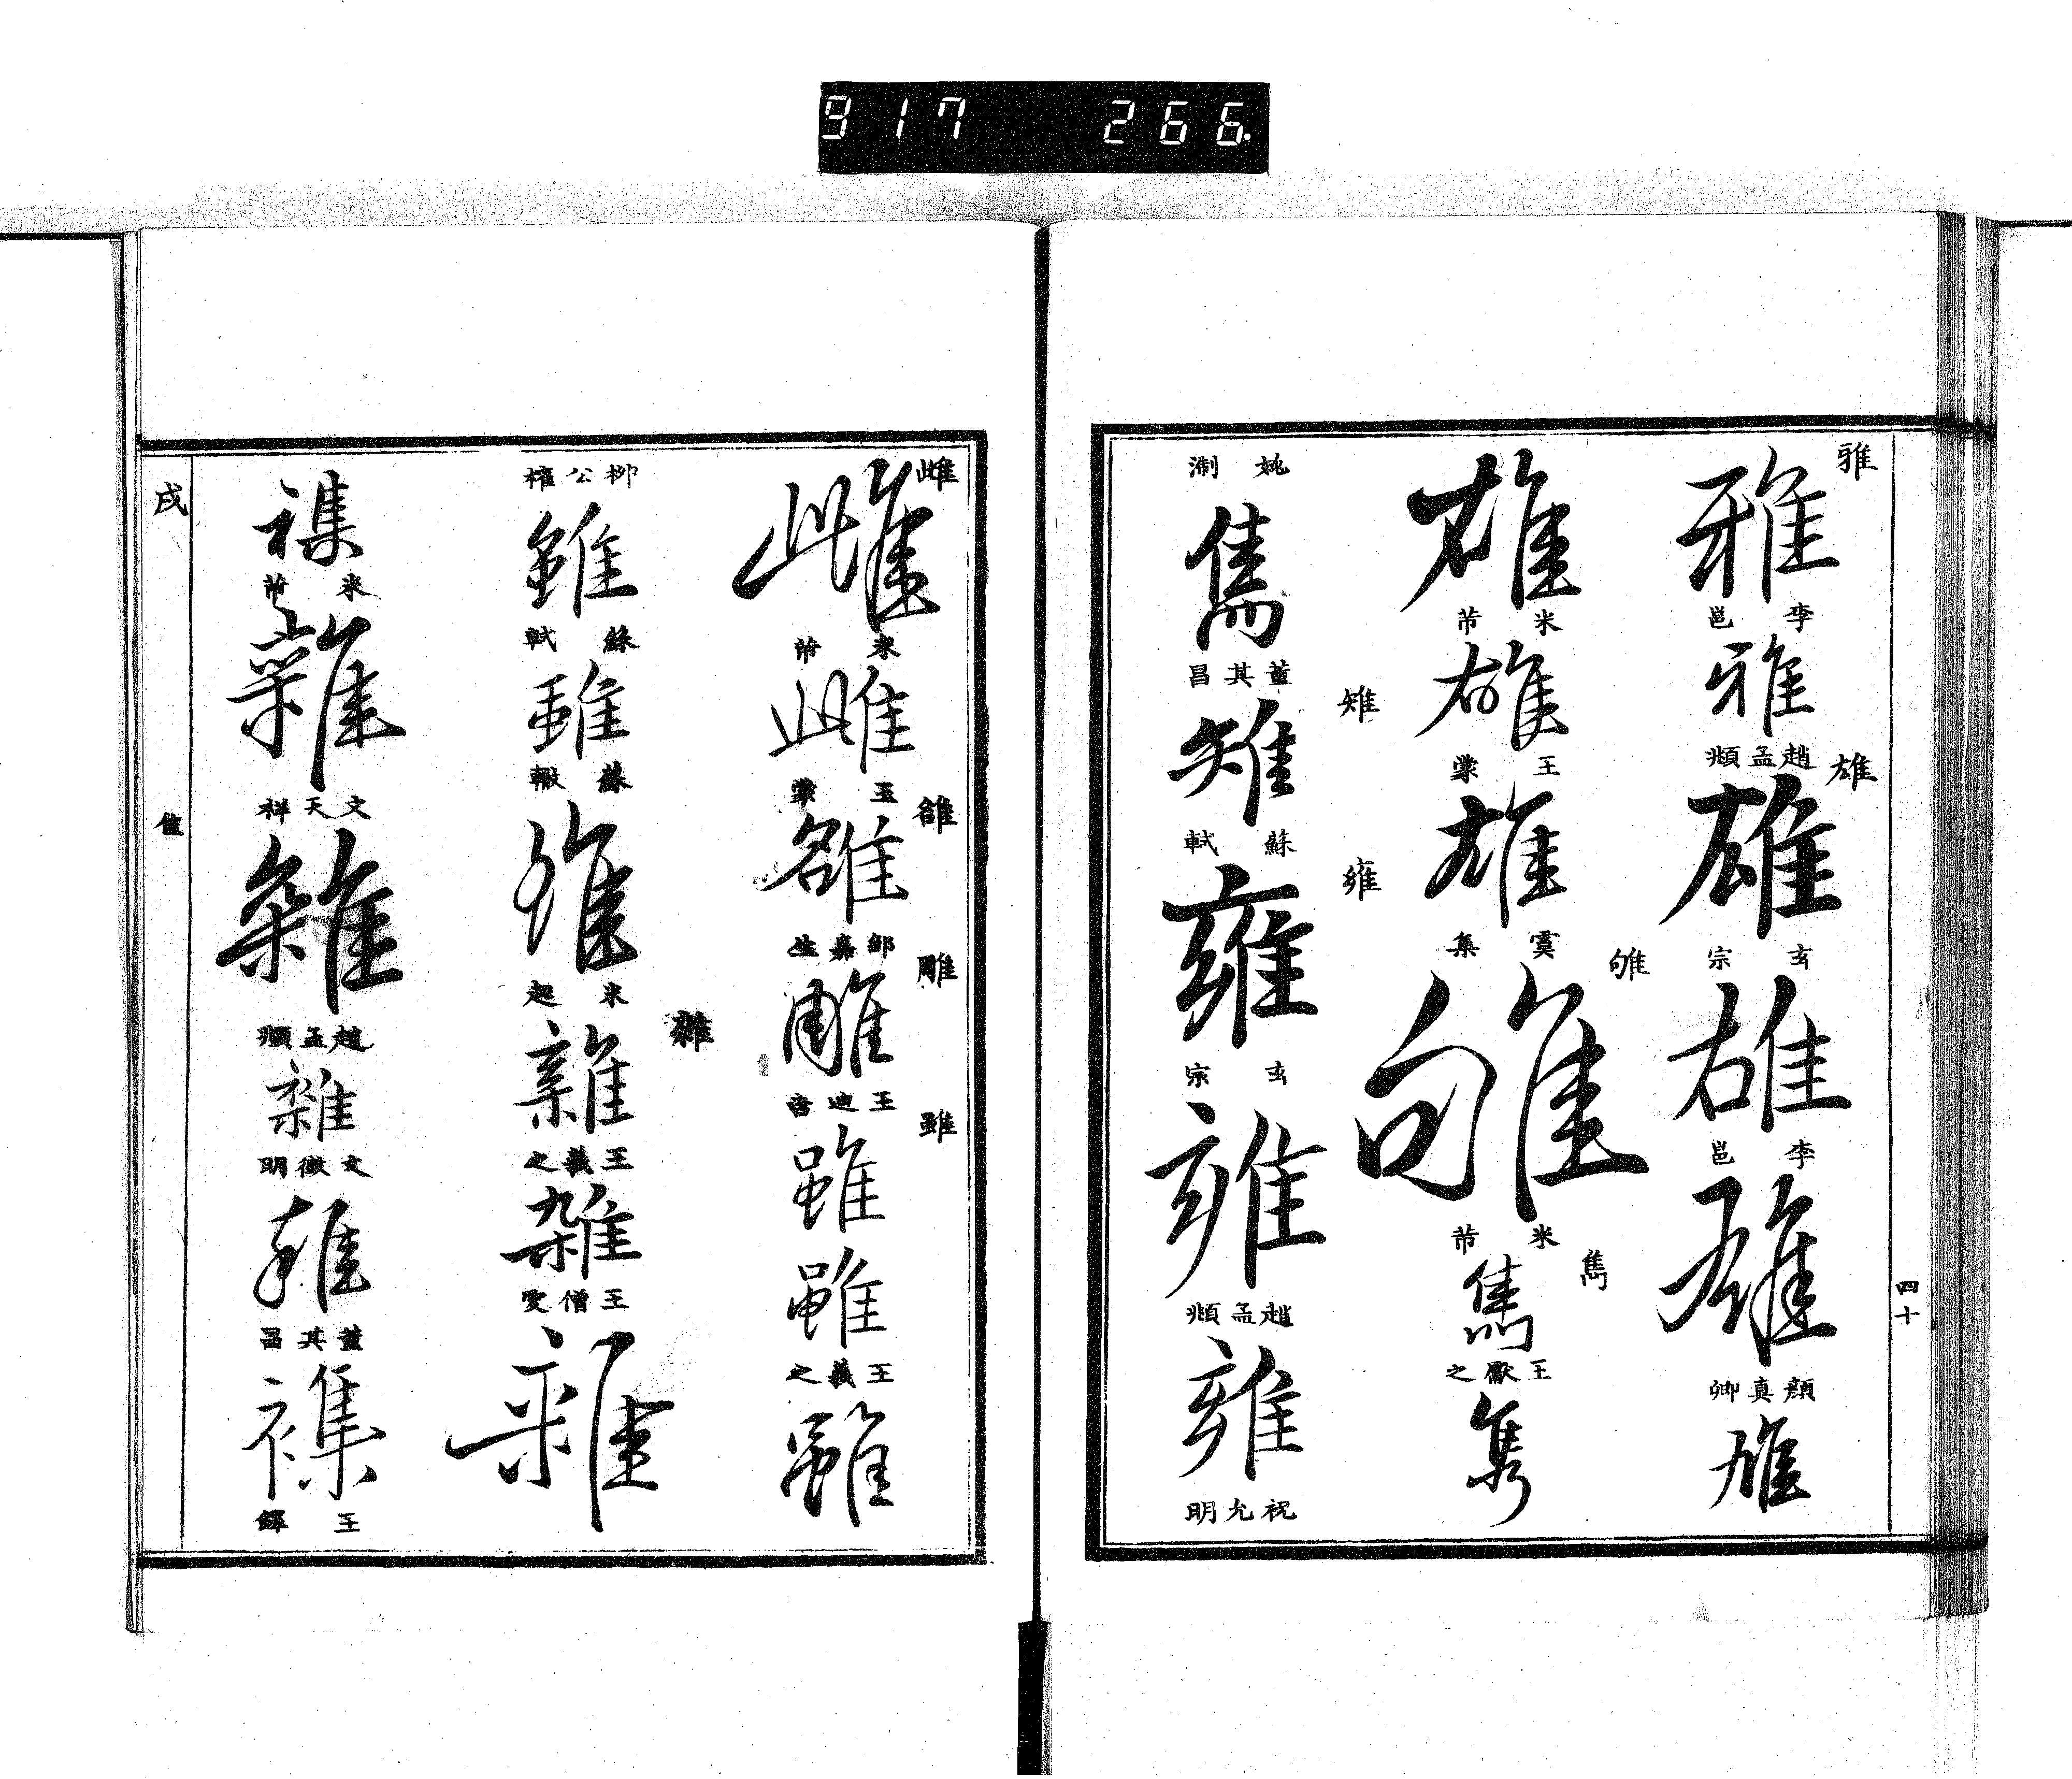 917 266
雅
雅
李邕
雅
趙孟頫
雄
雄
玄宗
雄
李邕
雄
顏真卿
雄
四十
雄
米芾
雄
王蒙
雄
虞集
雊
雊
米芾
雋
雋
王獻之
雋
姚淛
雋
董其昌
雉
雉
蘇軾
雍
雍
玄宗
雍
趙孟頫
雍
祝允明
雌
雌
米芾
雌
王蒙
雒
雒
鄒嘉生
雕
雕
王迪吉
雖
雖
雖
王羲之
雖
柳公權
雖
蘇軾
雖
蘇轍
雖
米芾
雜
雜
王羲之
雜
王僧虔
雜
襍
米芾
雜
文天祥
雜
趙孟頫
雜
文徵明
雜
董其昌
襍
王鐸
戌
隹